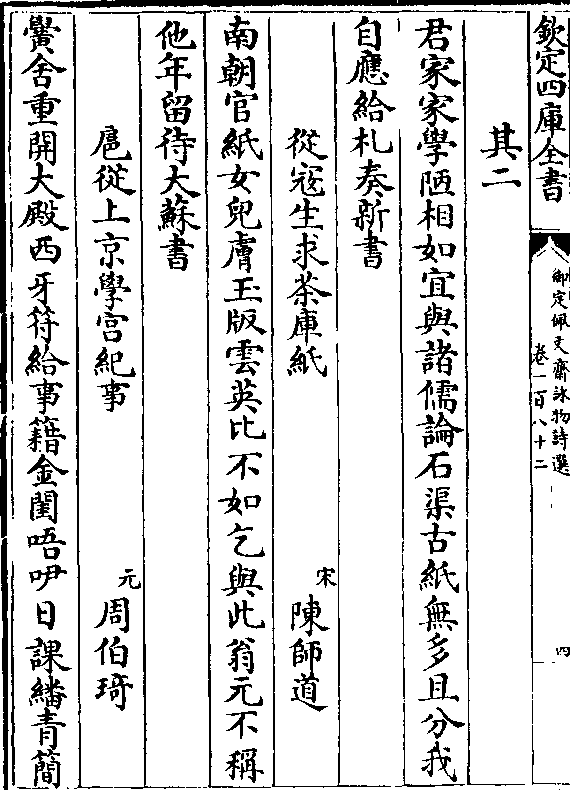 欽定四庫全書
御定佩文齋詠物詩選
卷一百八十二
四
其二
君家家學陋相如宜與諸儒論石渠古紙無多且分我
自應給札奏新書
從寇生求茶庫紙 宋 陳師道
南朝官紙女兒膚玉版雲英比不如乞與此翁元不稱
他年留待大蘇書
扈從上京學宫紀事 元 周伯琦
黌舍重開大殿西牙符給事籍金閨唔咿日課繙青簡